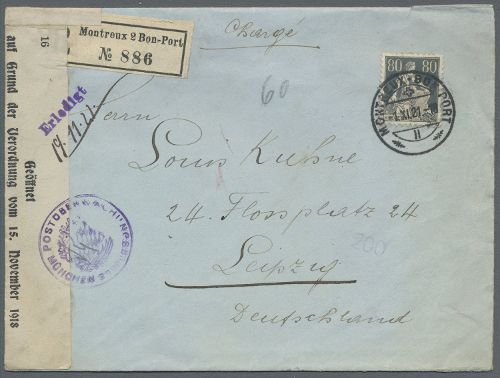 Montreux 2 Bon-Port
№ 886
Chargé
80 80
MONTREUX-BON PORT
XI.21
II
60
Erledigt
19.11.21.
Herrn
Louis Kuhne
24. Flossplatz 24
200
Leipzig
Deutschland
MÜNCHEN
16
Geöffnet
auf Grund der Verordnung vom 15. November 1918